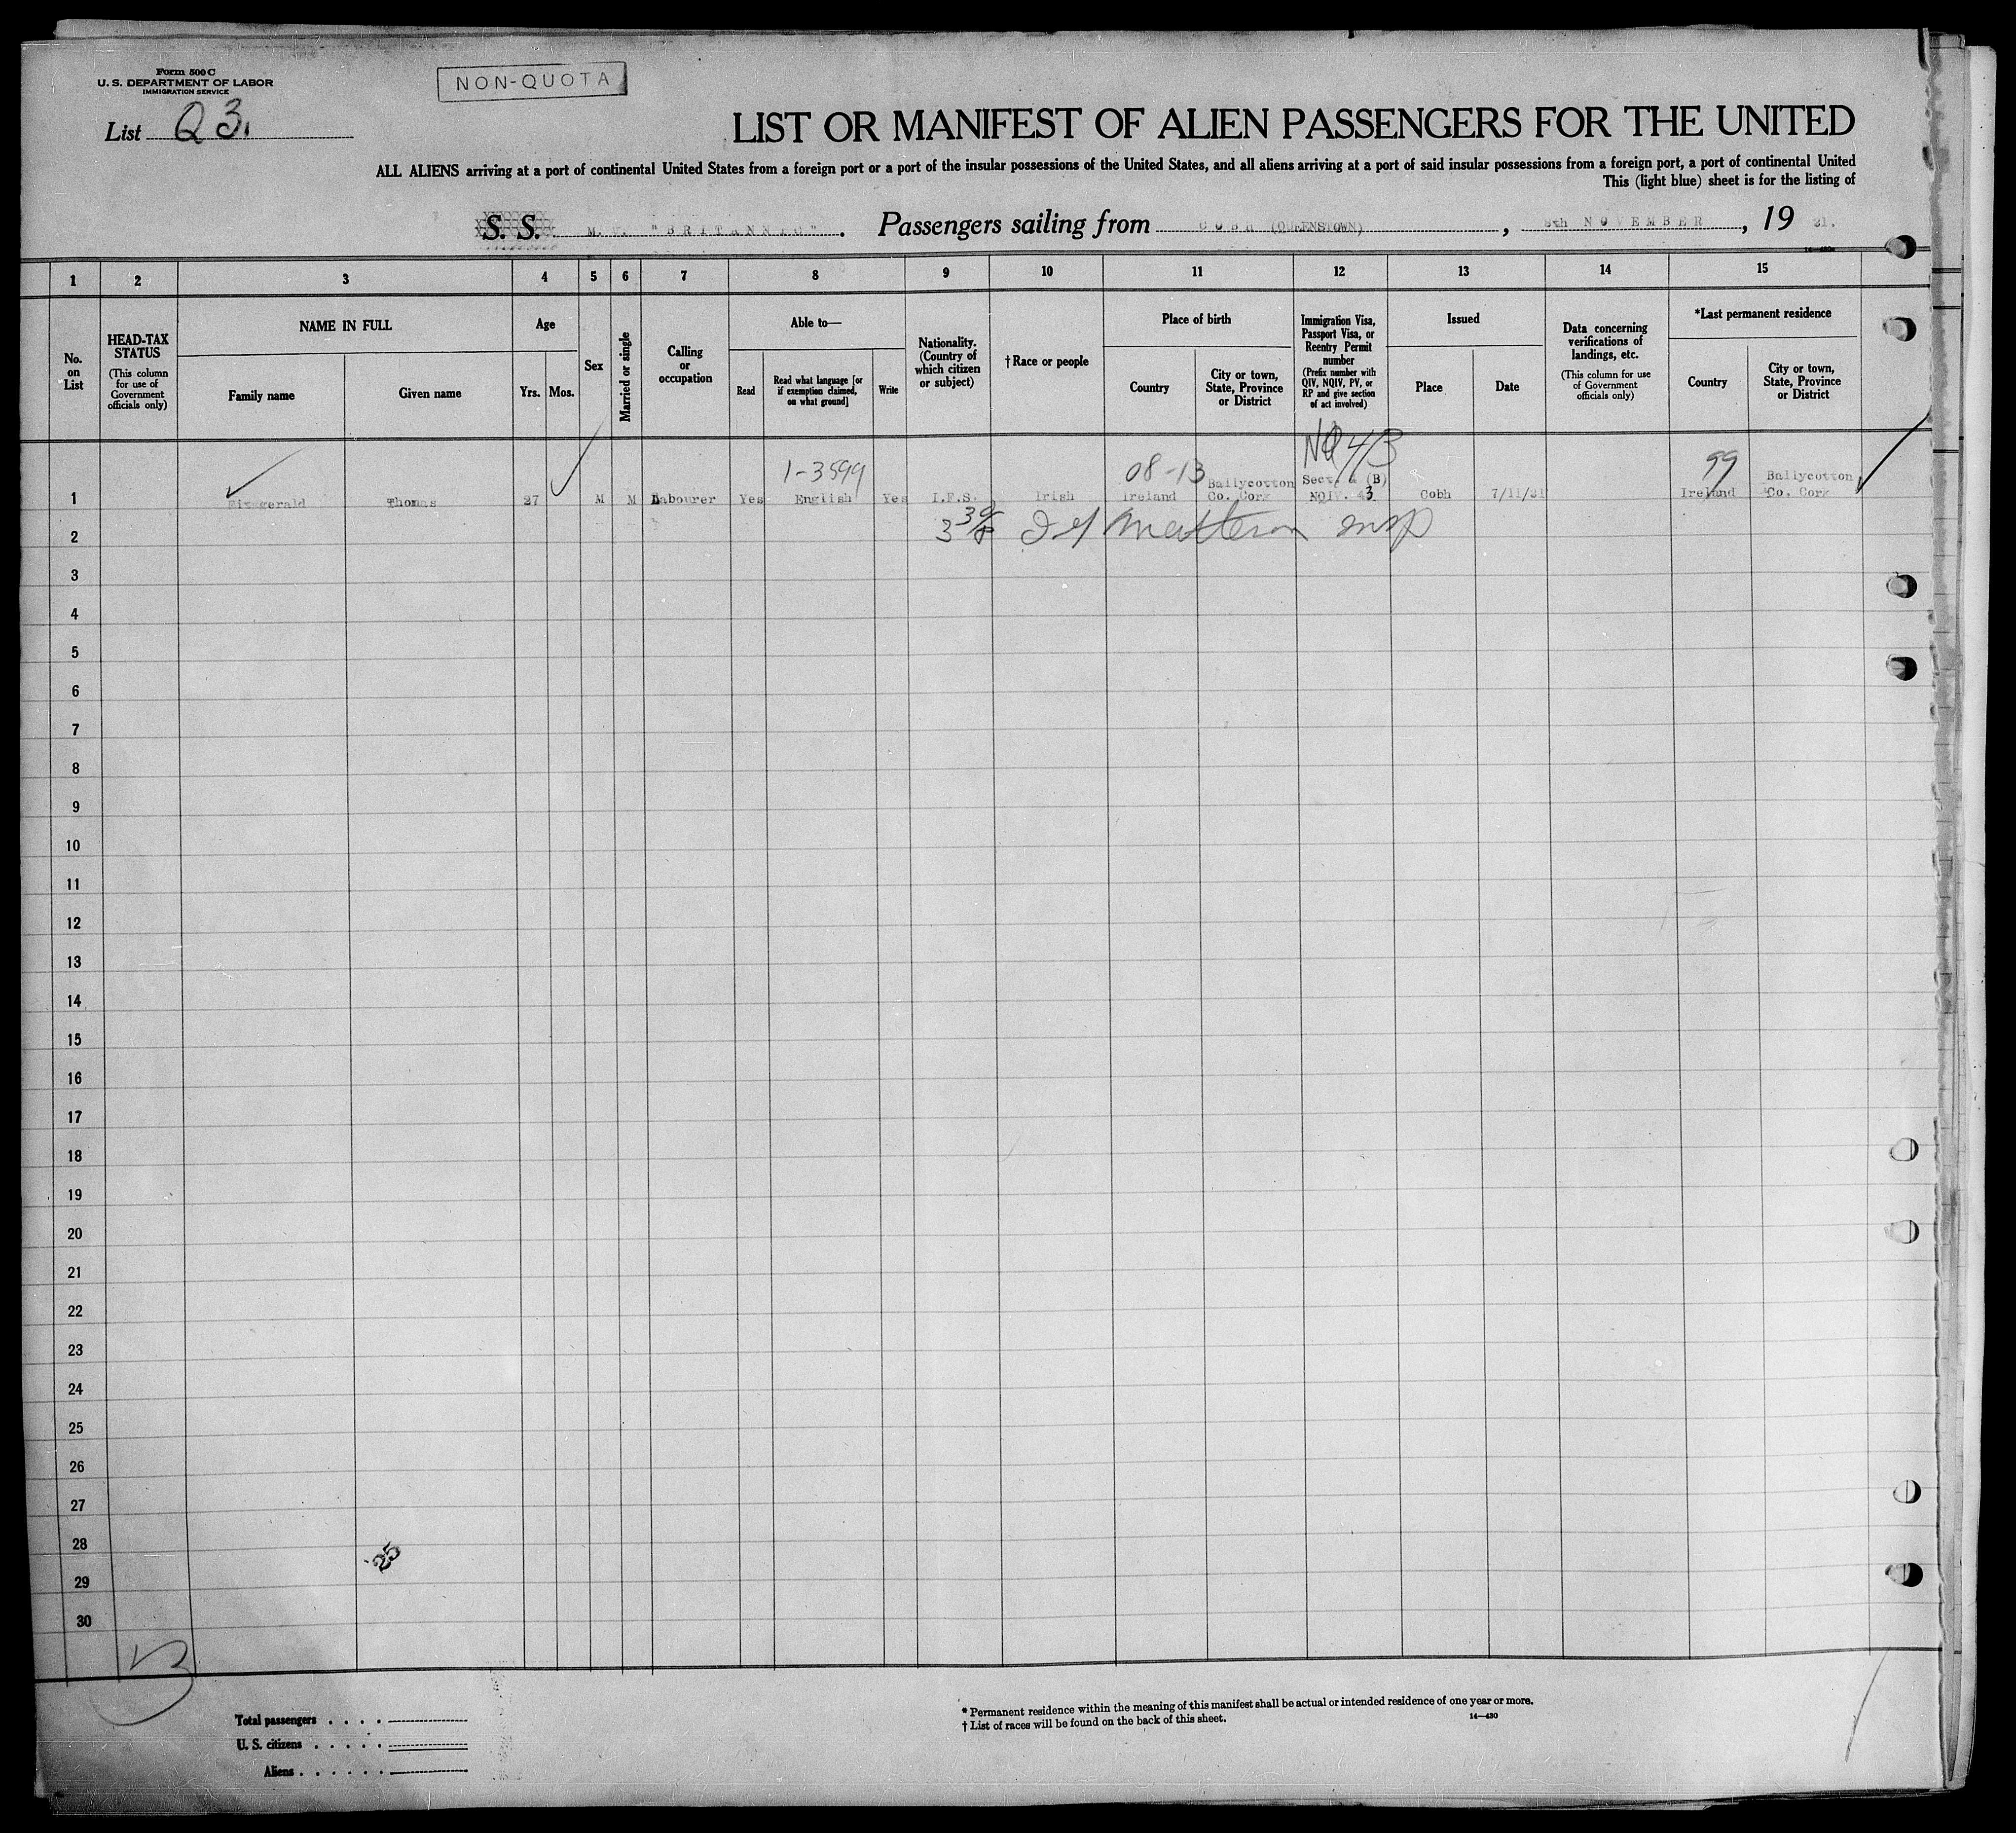 Form 500 C
U. S. DEPARTMENT OF LABOR
IMMIGRATION SERVICE
NON-QUOTA
List Q 3.
LIST OR MANIFEST OF ALIEN PASSENGERS FOR THE UNITED
ALL ALIENS arriving at a port of continental United States from a foreign port or a port of the insular possessions of the United States, and all aliens arriving at a port of said insular possessions from a foreign port, a port of continental United
This (light blue) sheet is for the listing of
S. S. M. V. "BRITANNIC". Passengers sailing from COBH (QUEENSTOWN), 8th NOVEMBER, 19 31.
14—430
1 2 3 4 5 6 7 8 9 10 11 12 13 14 15
No. on List
HEAD-TAX STATUS (This column for use of Government officials only)
NAME IN FULL
Family name Given name
Age
Yrs. Mos.
Sex
Married or single
Calling or occupation
Able to—
Read Read what language [or if exemption claimed, on what ground] Write
Nationality. (Country of which citizen or subject)
†Race or people
Place of birth
Country City or town, State, Province or District
Immigration Visa, Passport Visa, or Reentry Permit number (Prefix number with QIV, NQIV, PV, or RP and give section of act involved)
Issued
Place Date
Data concerning verifications of landings, etc. (This column for use of Government officials only)
*Last permanent residence
Country City or town, State, Province or District
1-3599 08-13 NQ 4/3 99
Ballycotton Sect. 4 (B) Ballycotton
1 Fitzgerald Thomas 27 M M Labourer Yes English Yes I.F.S. Irish Ireland Co. Cork NQIV. 43 Cobh 7/11/31 Ireland Co. Cork
2 Matteson insp
3
4
5
6
7
8
9
10
11
12
13
14
15
16
17
18
19
20
21
22
23
24
25
26
27
28
25
29
30
Total passengers
U. S. citizens
Aliens
* Permanent residence within the meaning of this manifest shall be actual or intended residence of one year or more.
† List of races will be found on the back of this sheet.
14—430